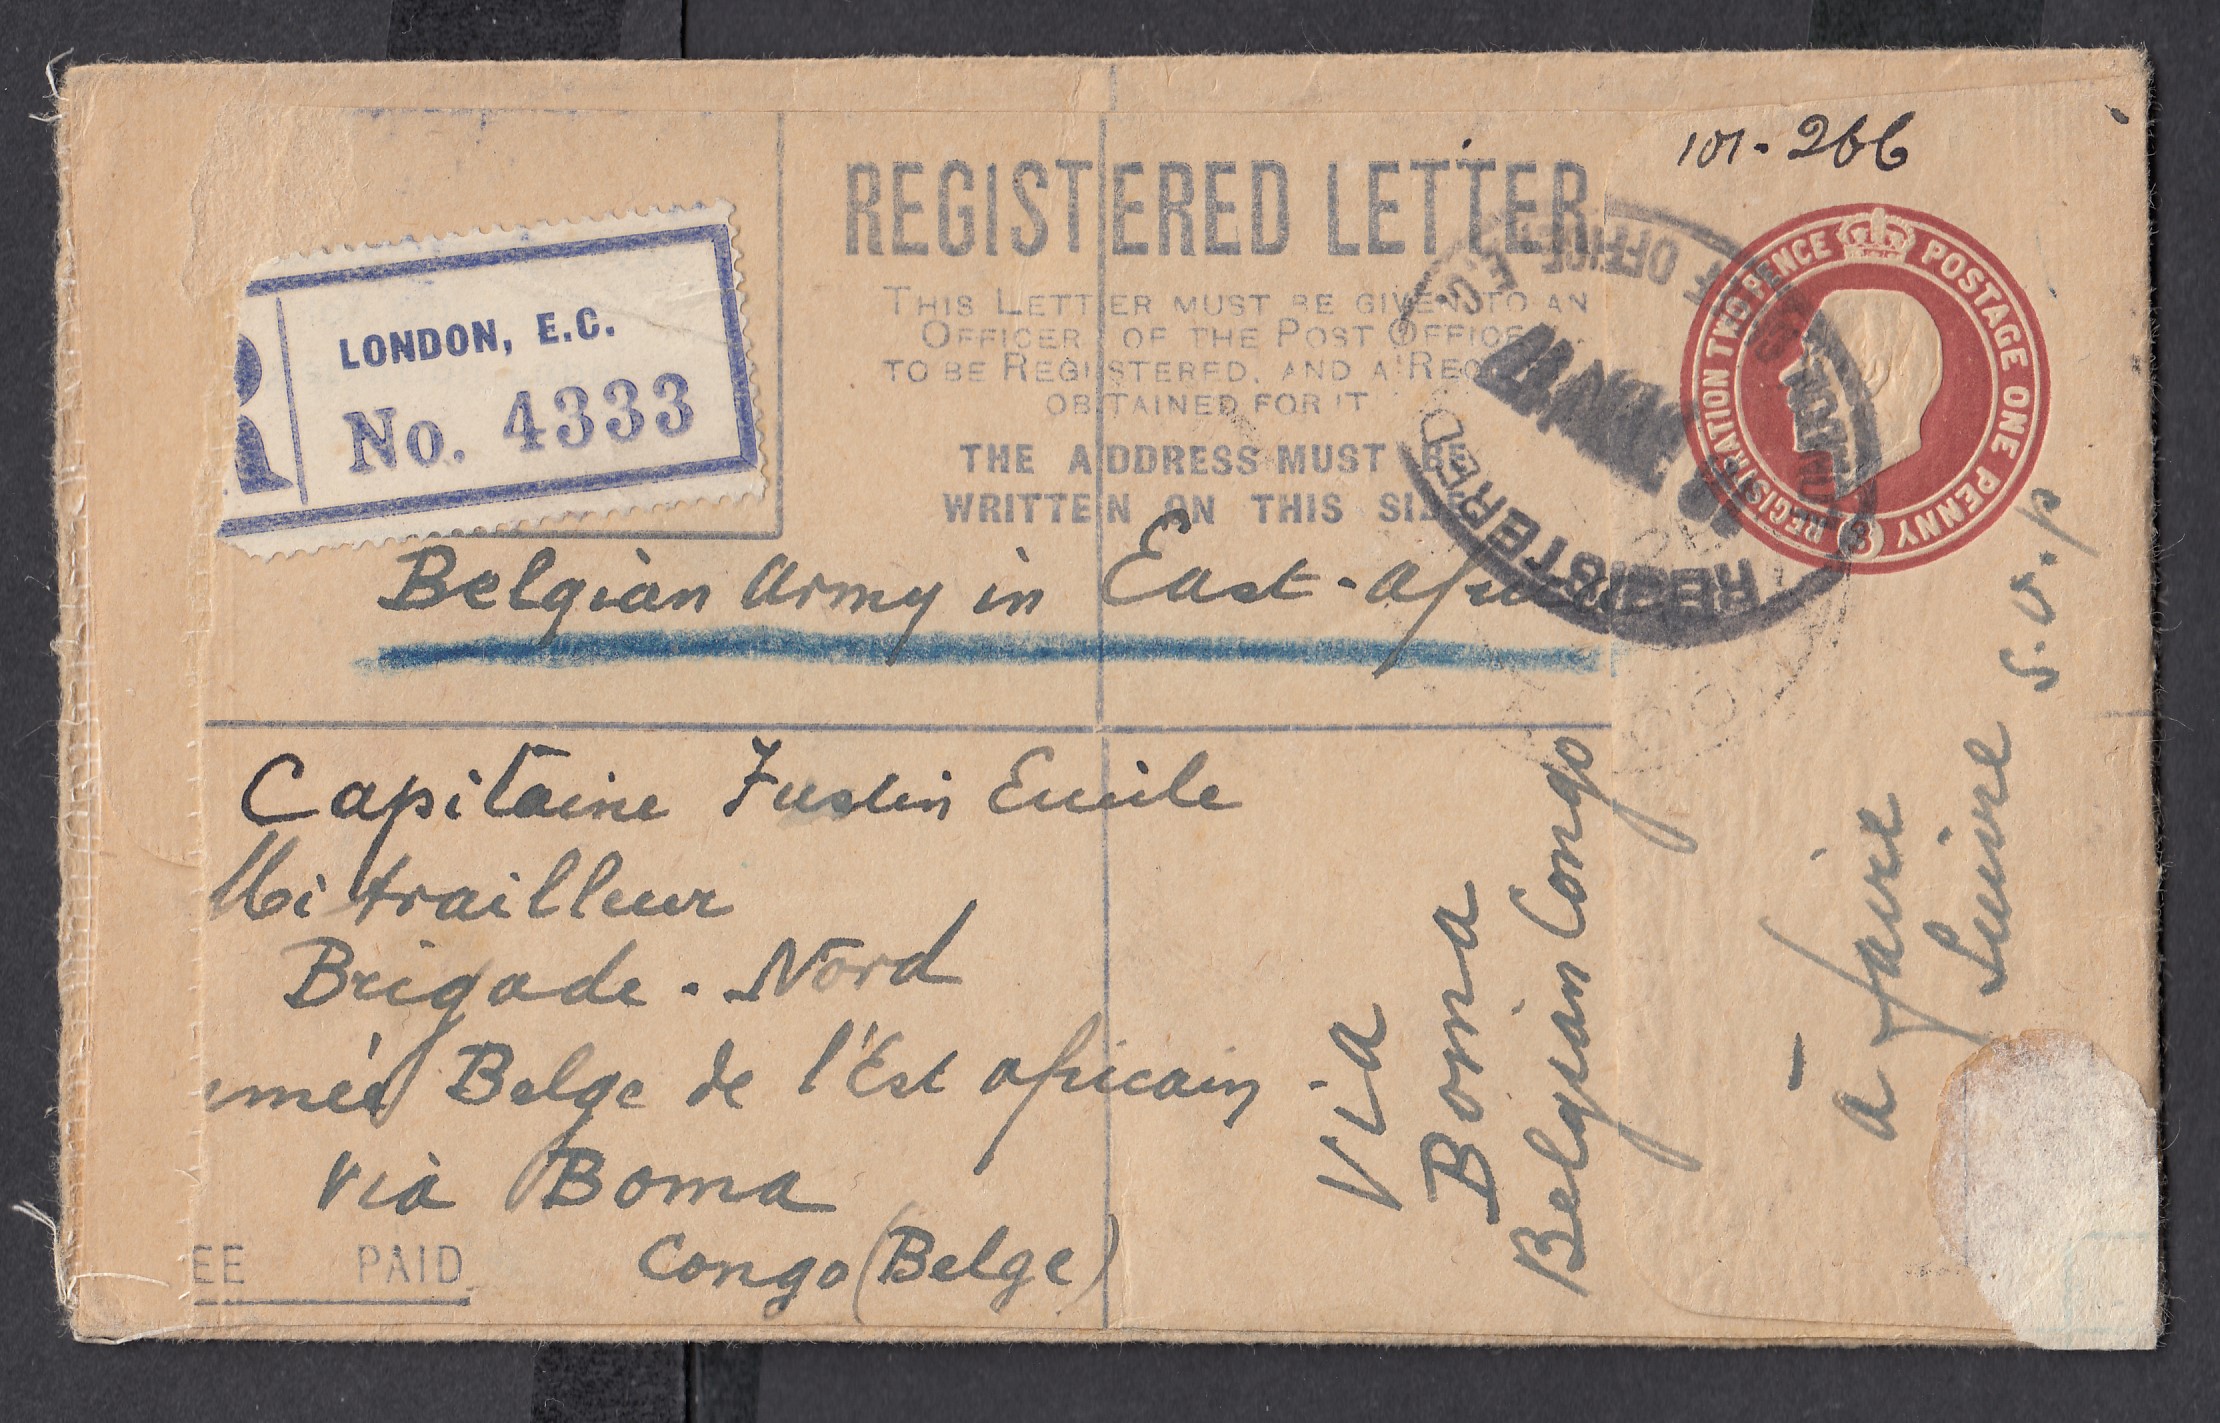 101-266
REGISTERED LETTER
THIS LETTER MUST BE GIVEN TO AN
OFFICER OF THE POST OFFICE
TO BE REGISTERED, AND A REC
OBTAINED FOR IT
THE ADDRESS MUST BE
WRITTEN ON THIS SI
R
LONDON, E.C.
No. 4333
REGISTRATION TWO PENCE POSTAGE ONE PENNY
REGISTERED
Belgian Army in East-Afri
Capitaine Justin Emile
Mitrailleur
Brigade-Nord
mée Belge de l'Est africain -
via Boma
Congo (Belge)
EE PAID
VIA
Boma
Belgian Congo
à faire
Suivre s.v.p